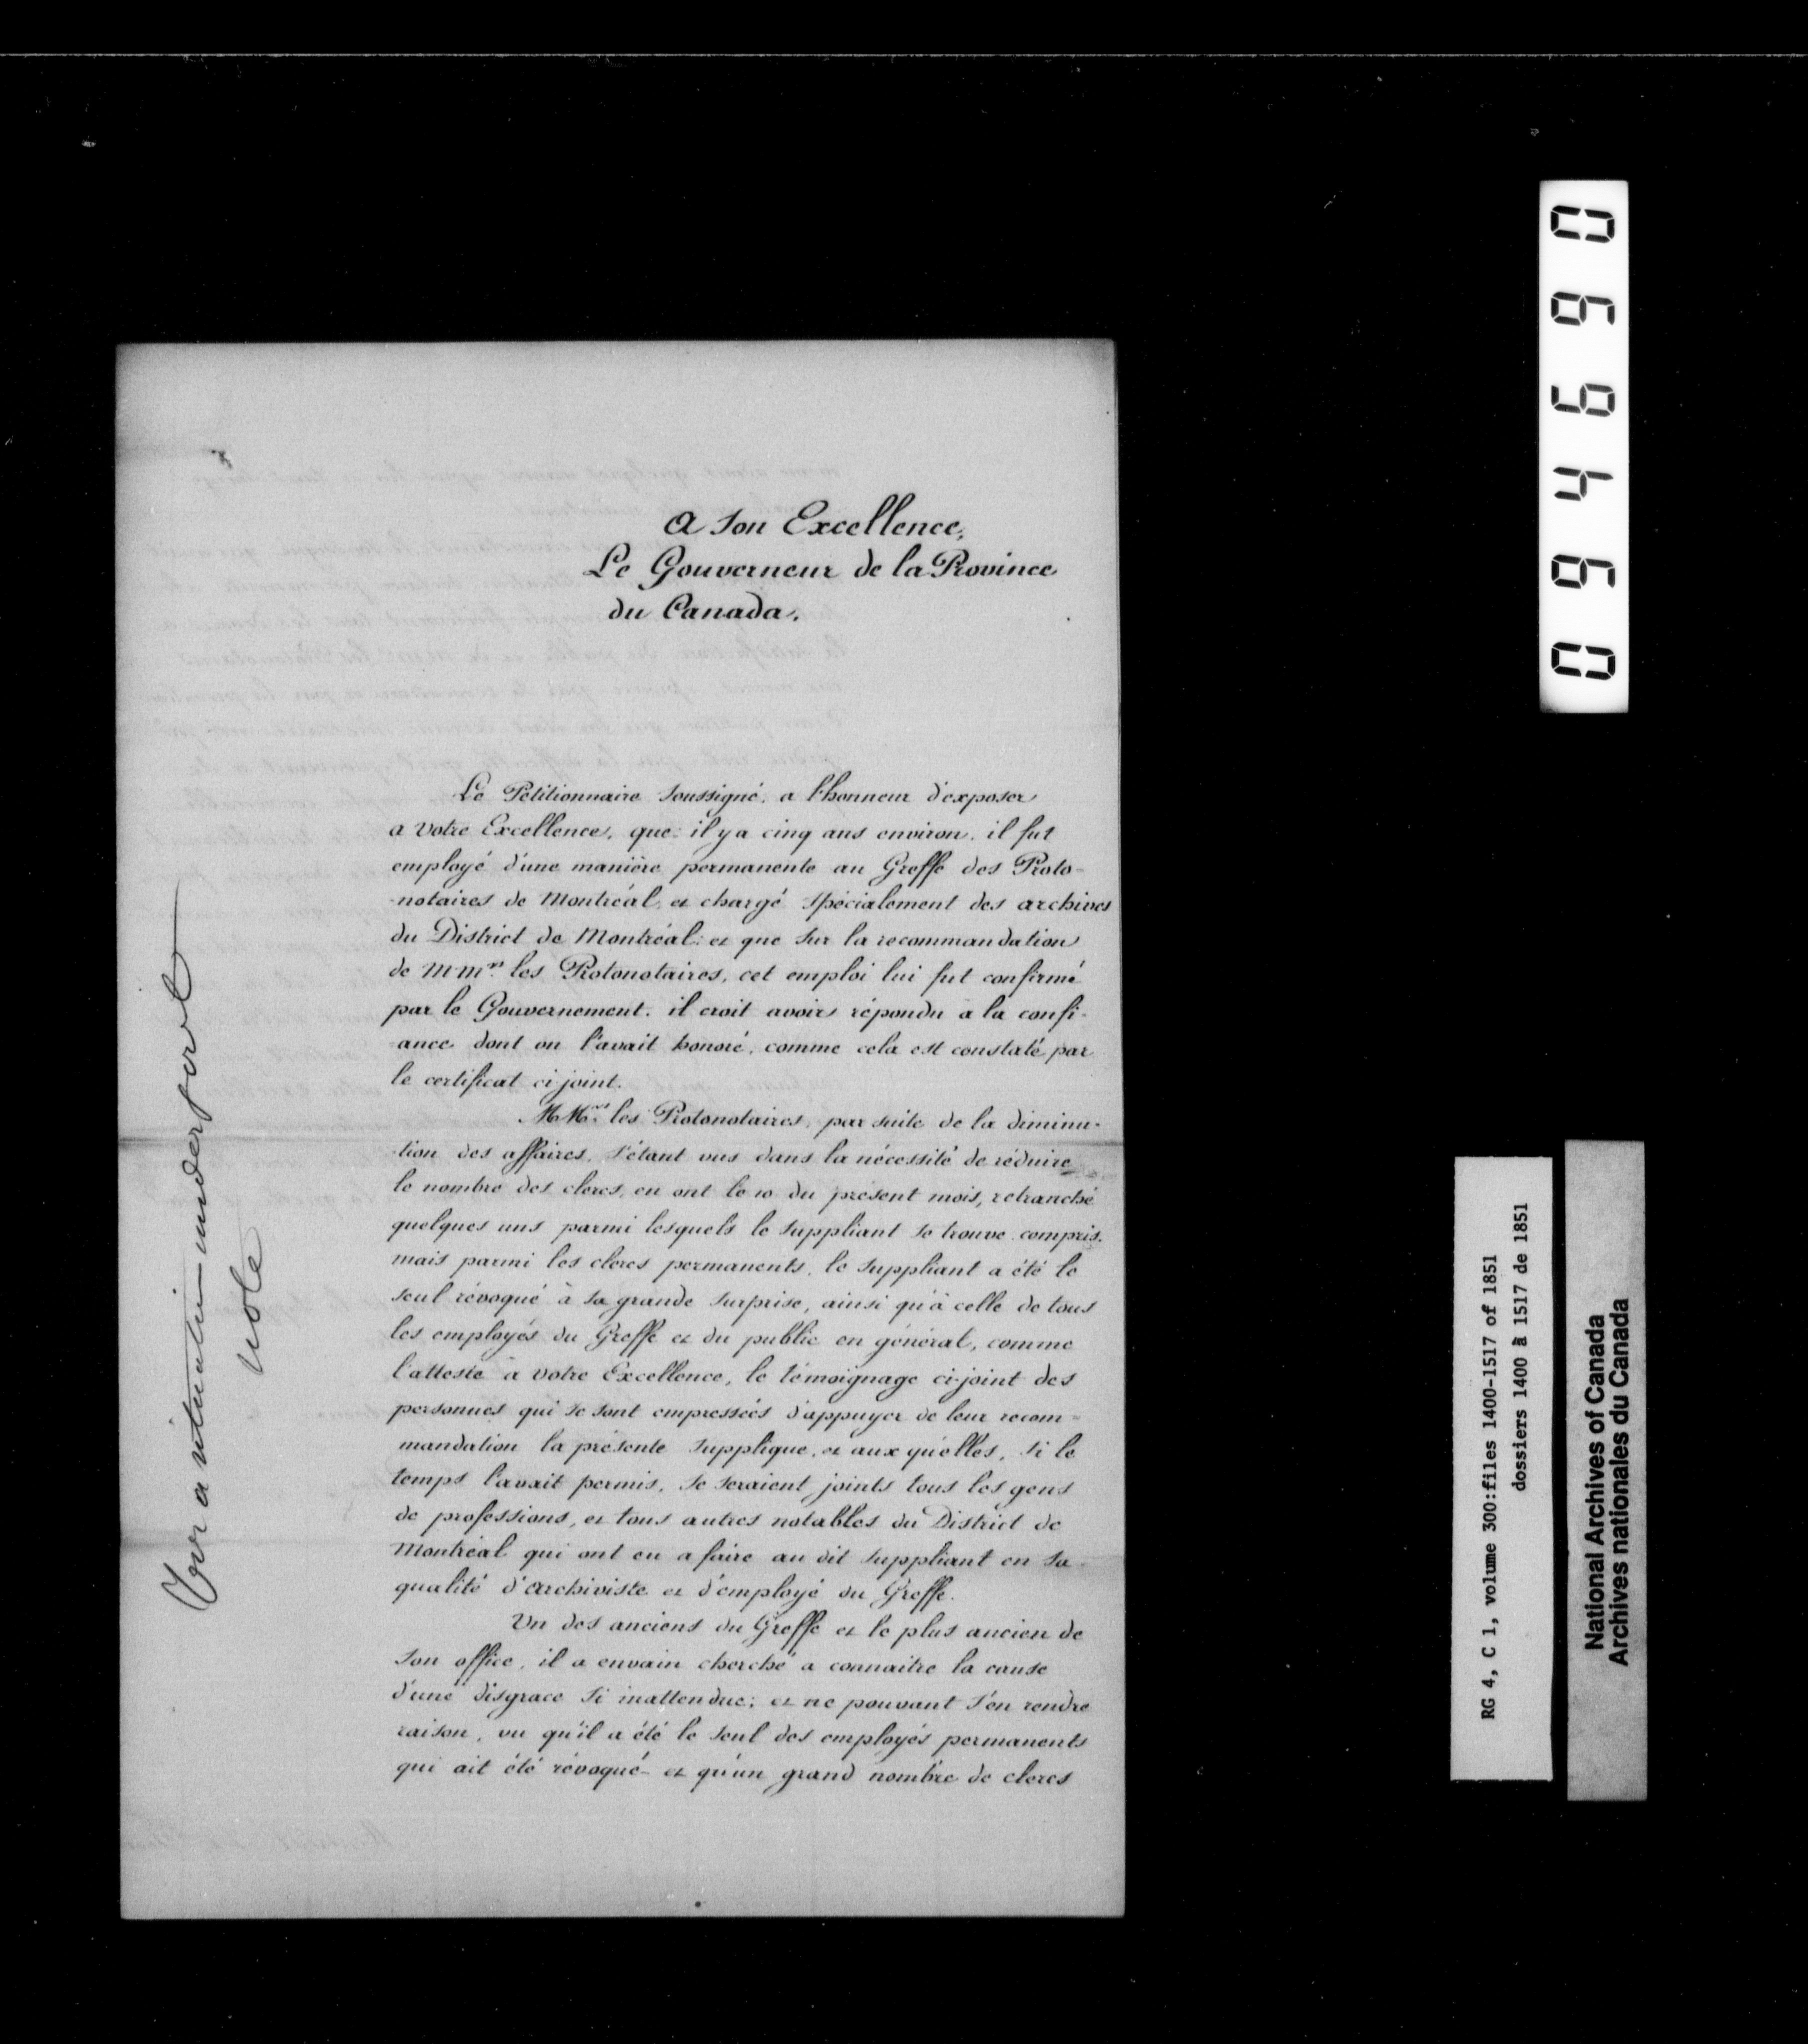 A Son Excellence,
Le Gouverneur de la Province
du Canada.
Le Pétitionnaire Soussigné, a l'honneur d'exposer
a Votre Excellence, que: il y a cinq ans environ, il fut
employé d'une manière permanente au Greffe des Proto-
-notaires de Montréal, et chargé Spécialement des archives
du District de Montréal: et que Sur la recommandation
de M.Mrs. les Protonotaires, cet emploi lui fut confirmé
par le Gouvernement. il croit avoir répondu a la confi-
-ance dont on l'avait honoré, comme cela est constaté par
le certificat ci joint.
M.Mrs. les Protonotaires, par suite de la diminu-
-tion des affaires, S'étant vus dans la nécessité de réduire
le nombre des clercs, en ont le 10 du présent mois, retranché
quelques uns parmi lesquels le Suppliant Se trouve compris.
mais parmi les clercs permanents, le Suppliant a été le
Seul révoqué à Sa grande Surprise, ainsi qu'à celle de tous
les employés du Greffe et du public en général, comme
l'atteste a Votre Excellence, le témoignage ci-joint des
personnes qui Se Sont empressées d'appuyer de leur recom-
mandation la présente Supplique, et aux qu'elles, Si le
temps l'avait permis, Se Seraient joints tous les gens
de professions, et tous autres notables du District de
Montréal qui ont eu a faire au dit Suppliant en Sa
qualité d'Archiviste et d'employé du Greffe.
Un des anciens du Greffe et le plus ancien de
Son office, il a envain cherché a connaitre la cause
d'une disgrace Si inattendue; et ne pouvant S'en rendre
raison, vu qu'il a été le Seul des employés permanents
qui ait été révoqué et qu'un grand nombre de clercs
For a under
note
0 9 4 6 9 0
RG 4, C 1, volume 300:files 1400-1517 of 1851
dossiers 1400 à 1517 de 1851
National Archives of Canada
Archives nationales du Canada